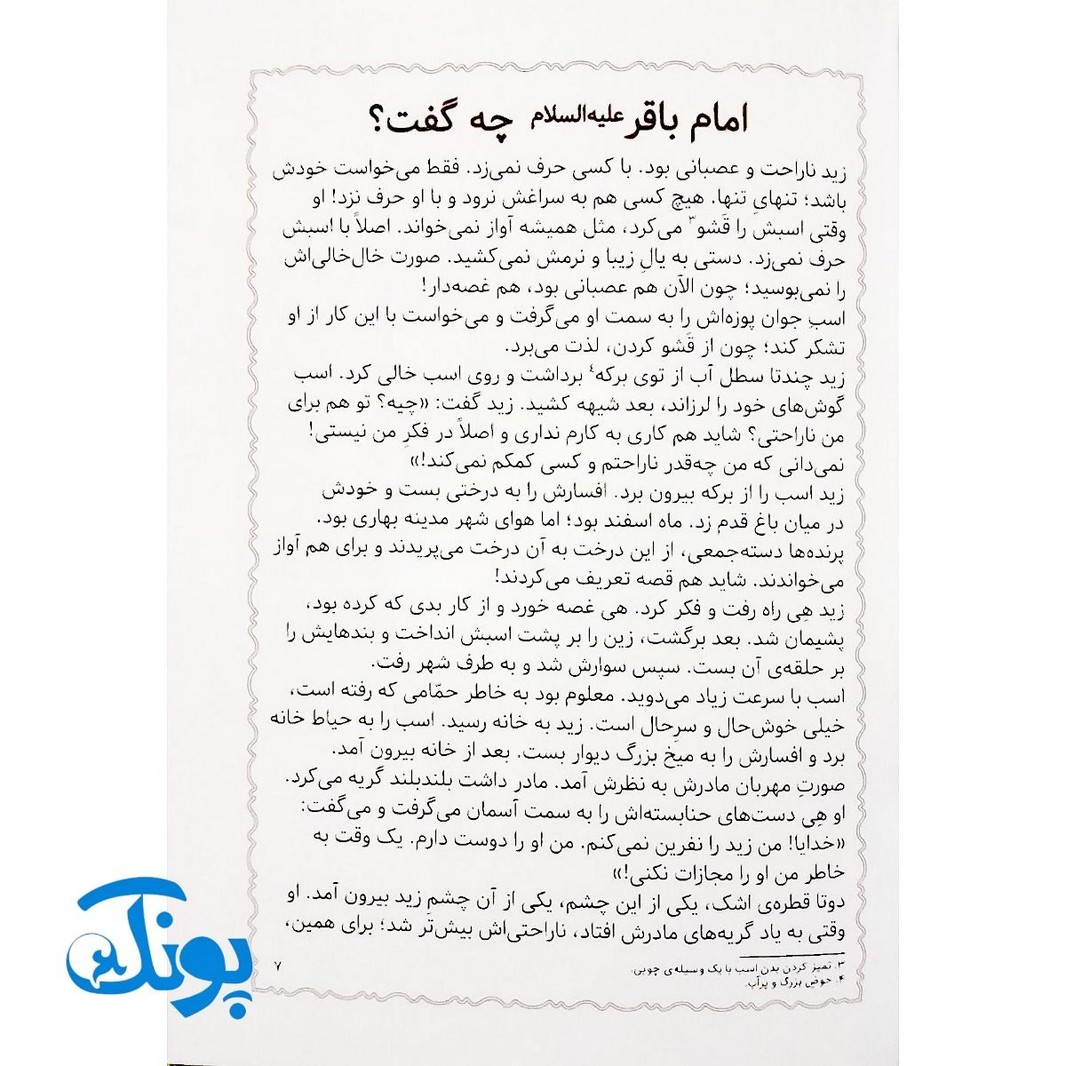 امام باقر علیه‌السلام چه گفت؟
زید ناراحت و عصبانی بود. با کسی حرف نمی‌زد. فقط می‌خواست خودش
باشد؛ تنهایِ تنها. هیچ کسی هم به سراغش نرود و با او حرف نزد! او
وقتی اسبش را قَشو۳ می‌کرد، مثل همیشه آواز نمی‌خواند. اصلاً با اسبش
حرف نمی‌زد. دستی به یالِ زیبا و نرمش نمی‌کشید. صورت خال‌خالی‌اش
را نمی‌بوسید؛ چون الآن هم عصبانی بود، هم غصه‌دار!
اسبِ جوان پوزه‌اش را به سمت او می‌گرفت و می‌خواست با این کار از او
تشکر کند؛ چون از قَشو کردن، لذت می‌برد.
زید چندتا سطل آب از توی برکه۴ برداشت و روی اسب خالی کرد. اسب
گوش‌های خود را لرزاند، بعد شیهه کشید. زید گفت: «چیه؟ تو هم برای
من ناراحتی؟ شاید هم کاری به کارم نداری و اصلاً در فکرِ من نیستی!
نمی‌دانی که من چه‌قدر ناراحتم و کسی کمکم نمی‌کند!»
زید اسب را از برکه بیرون برد. افسارش را به درختی بست و خودش
در میان باغ قدم زد. ماه اسفند بود؛ اما هوای شهر مدینه بهاری بود.
پرنده‌ها دسته‌جمعی، از این درخت به آن درخت می‌پریدند و برای هم آواز
می‌خواندند. شاید هم قصه تعریف می‌کردند!
زید هِی راه رفت و فکر کرد. هی غصه خورد و از کار بدی که کرده بود،
پشیمان شد. بعد برگشت، زین را بر پشت اسبش انداخت و بندهایش را
بر حلقه‌ی آن بست. سپس سوارش شد و به طرف شهر رفت.
اسب با سرعت زیاد می‌دوید. معلوم بود به خاطر حمّامی که رفته است،
خیلی خوش‌حال و سرِحال است. زید به خانه رسید. اسب را به حیاط خانه
برد و افسارش را به میخ بزرگ دیوار بست. بعد از خانه بیرون آمد.
صورتِ مهربان مادرش به نظرش آمد. مادر داشت بلندبلند گریه می‌کرد.
او هِی دست‌های حنابسته‌اش را به سمت آسمان می‌گرفت و می‌گفت:
«خدایا! من زید را نفرین نمی‌کنم. من او را دوست دارم. یک وقت به
خاطر من او را مجازات نکنی!»
دوتا قطره‌ی اشک، یکی از این چشم، یکی از آن چشمِ زید بیرون آمد. او
وقتی به یاد گریه‌های مادرش افتاد، ناراحتی‌اش بیش‌تر شد؛ برای همین،
۳. تمیز کردن بدن اسب با یک وسیله‌ی چوبی.
۴. حوض بزرگ و پرآب.
۷
پونک